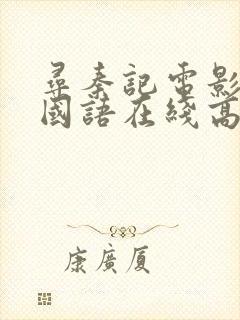 尋秦記電影
國語在綫高
康廣厦